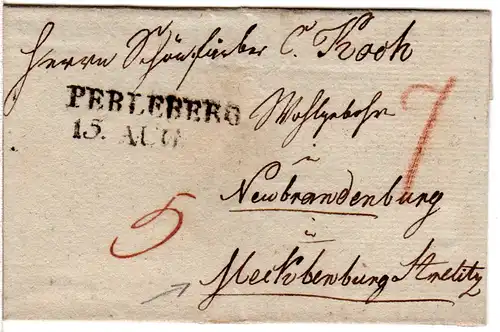 Herrn Schönfärber C. Koch
PERLEBERG
15. AUG.
Wohlgebohr
7
in
Neubrandenburg
5
in
Mecklenburg Strelitz